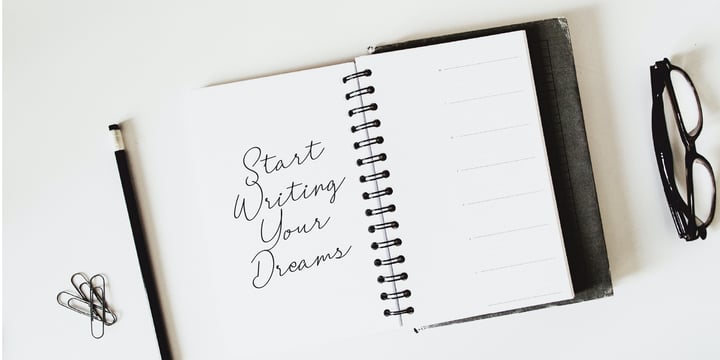 Start
Writing
Your
Dreams